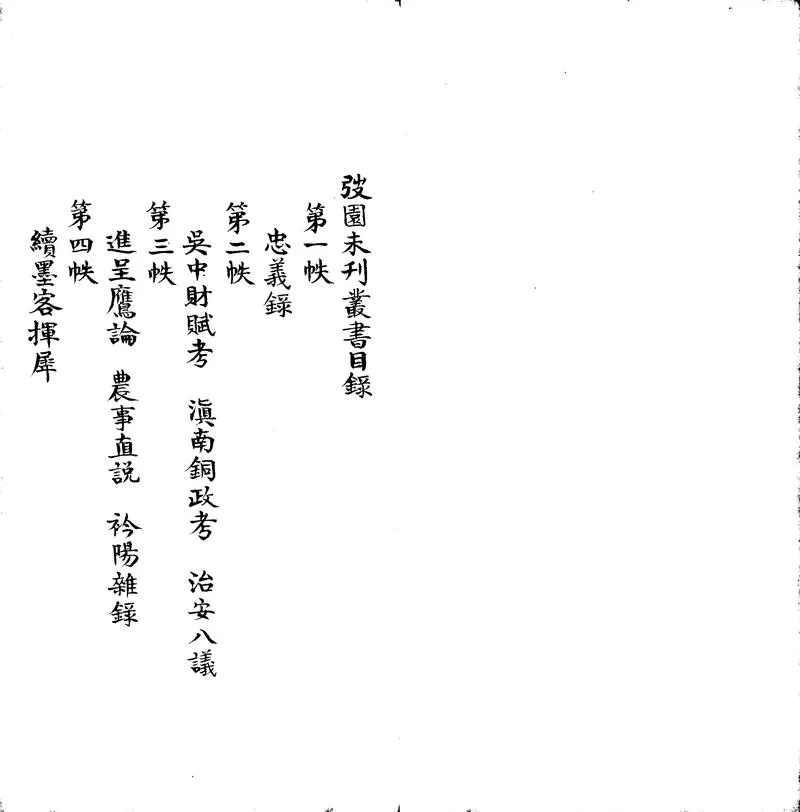 弢園未刊叢書目錄
第一帙
忠義錄
第二帙
吳中財賦考　滇南銅政考　治安八議
第三帙
進呈鷹論　農事直説　衿陽雜錄
第四帙
續墨客揮犀